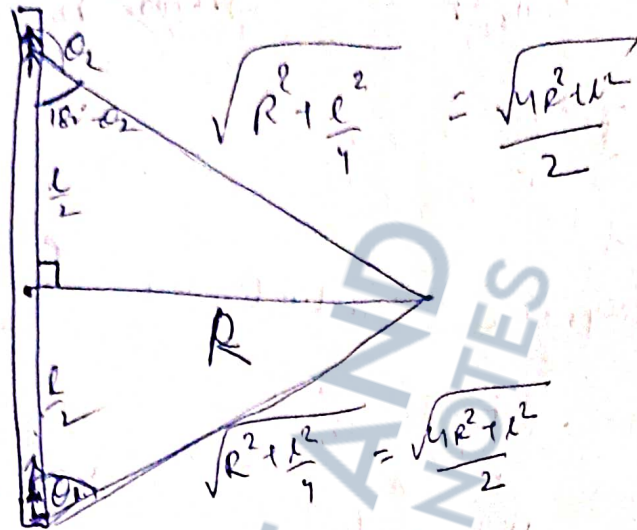 θ₂
180-θ₂
√(R² + l²/4) = √(4R²+l²)/2
l/2
R
l/2
√(R² + l²/4) = √(4R²+l²)/2
θ₁
AND
NOTES